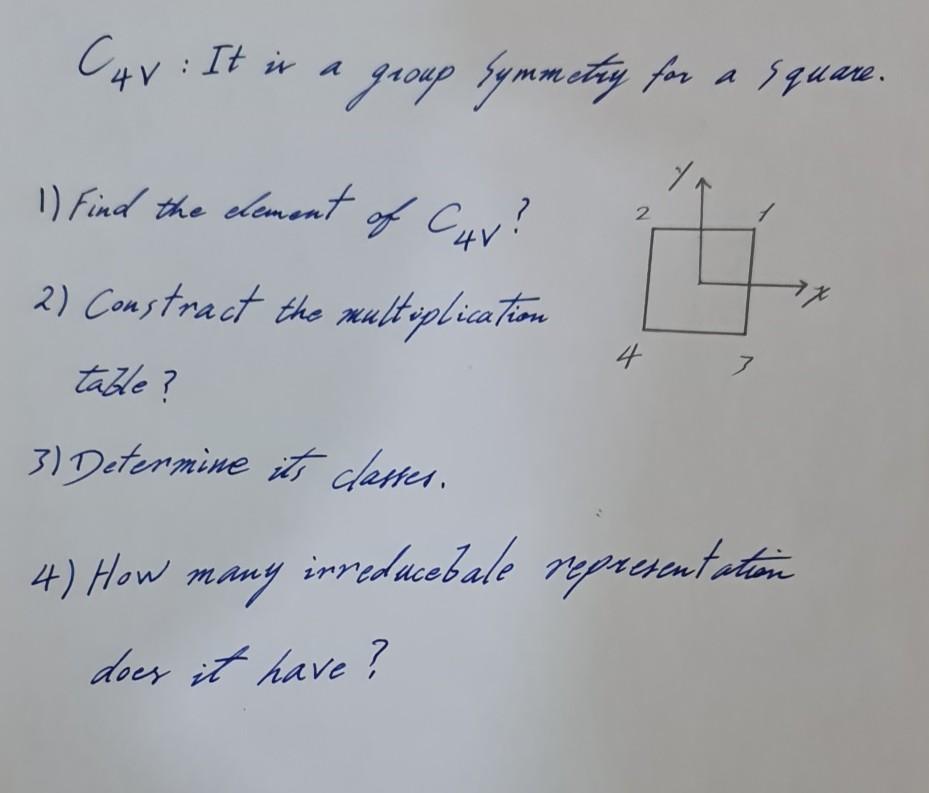 C4V : It is a group Symmetry for a Square.
1) Find the element of C4V ?
y
2 1
x
2) Constract the multiplication
4 3
table ?
3) Determine its classes.
4) How many irreducebale representation
does it have ?